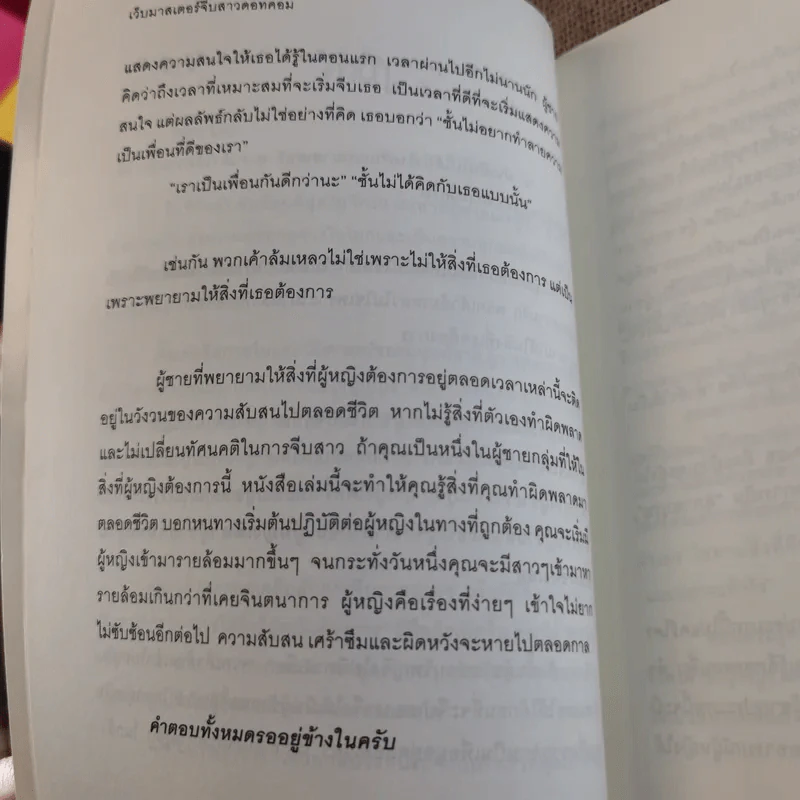 เว็บมาสเตอร์จีบสาวดอทคอม
แสดงความสนใจให้เธอได้รู้ในตอนแรก เวลาผ่านไปอีกไม่นานนัก ผู้ชาย
คิดว่าถึงเวลาที่เหมาะสมที่จะเริ่มจีบเธอ เป็นเวลาที่ดีที่จะเริ่มแสดงความ
สนใจ แต่ผลลัพธ์กลับไม่ใช่อย่างที่คิด เธอบอกว่า "ชั้นไม่อยากทำลายความ
เป็นเพื่อนที่ดีของเรา"
"เราเป็นเพื่อนกันดีกว่านะ" "ชั้นไม่ได้คิดกับเธอแบบนั้น"
เช่นกัน พวกเค้าล้มเหลวไม่ใช่เพราะไม่ให้สิ่งที่เธอต้องการ แต่เป็น
เพราะพยายามให้สิ่งที่เธอต้องการ
ผู้ชายที่พยายามให้สิ่งที่ผู้หญิงต้องการอยู่ตลอดเวลาเหล่านี้จะติด
อยู่ในวังวนของความสับสนไปตลอดชีวิต หากไม่รู้สิ่งที่ตัวเองทำผิดพลาด
และไม่เปลี่ยนทัศนคติในการจีบสาว ถ้าคุณเป็นหนึ่งในผู้ชายกลุ่มที่ให้ใน
สิ่งที่ผู้หญิงต้องการนี้ หนังสือเล่มนี้จะทำให้คุณรู้สิ่งที่คุณทำผิดพลาดมา
ตลอดชีวิต บอกหนทางเริ่มต้นปฏิบัติต่อผู้หญิงในทางที่ถูกต้อง คุณจะเริ่มมี
ผู้หญิงเข้ามารายล้อมมากขึ้นๆ จนกระทั่งวันหนึ่งคุณจะมีสาวๆเข้ามาหา
รายล้อมเกินกว่าที่เคยจินตนาการ ผู้หญิงคือเรื่องที่ง่ายๆ เข้าใจไม่ยาก
ไม่ซับซ้อนอีกต่อไป ความสับสน เศร้าซึมและผิดหวังจะหายไปตลอดกาล
คำตอบทั้งหมดรออยู่ข้างในครับ